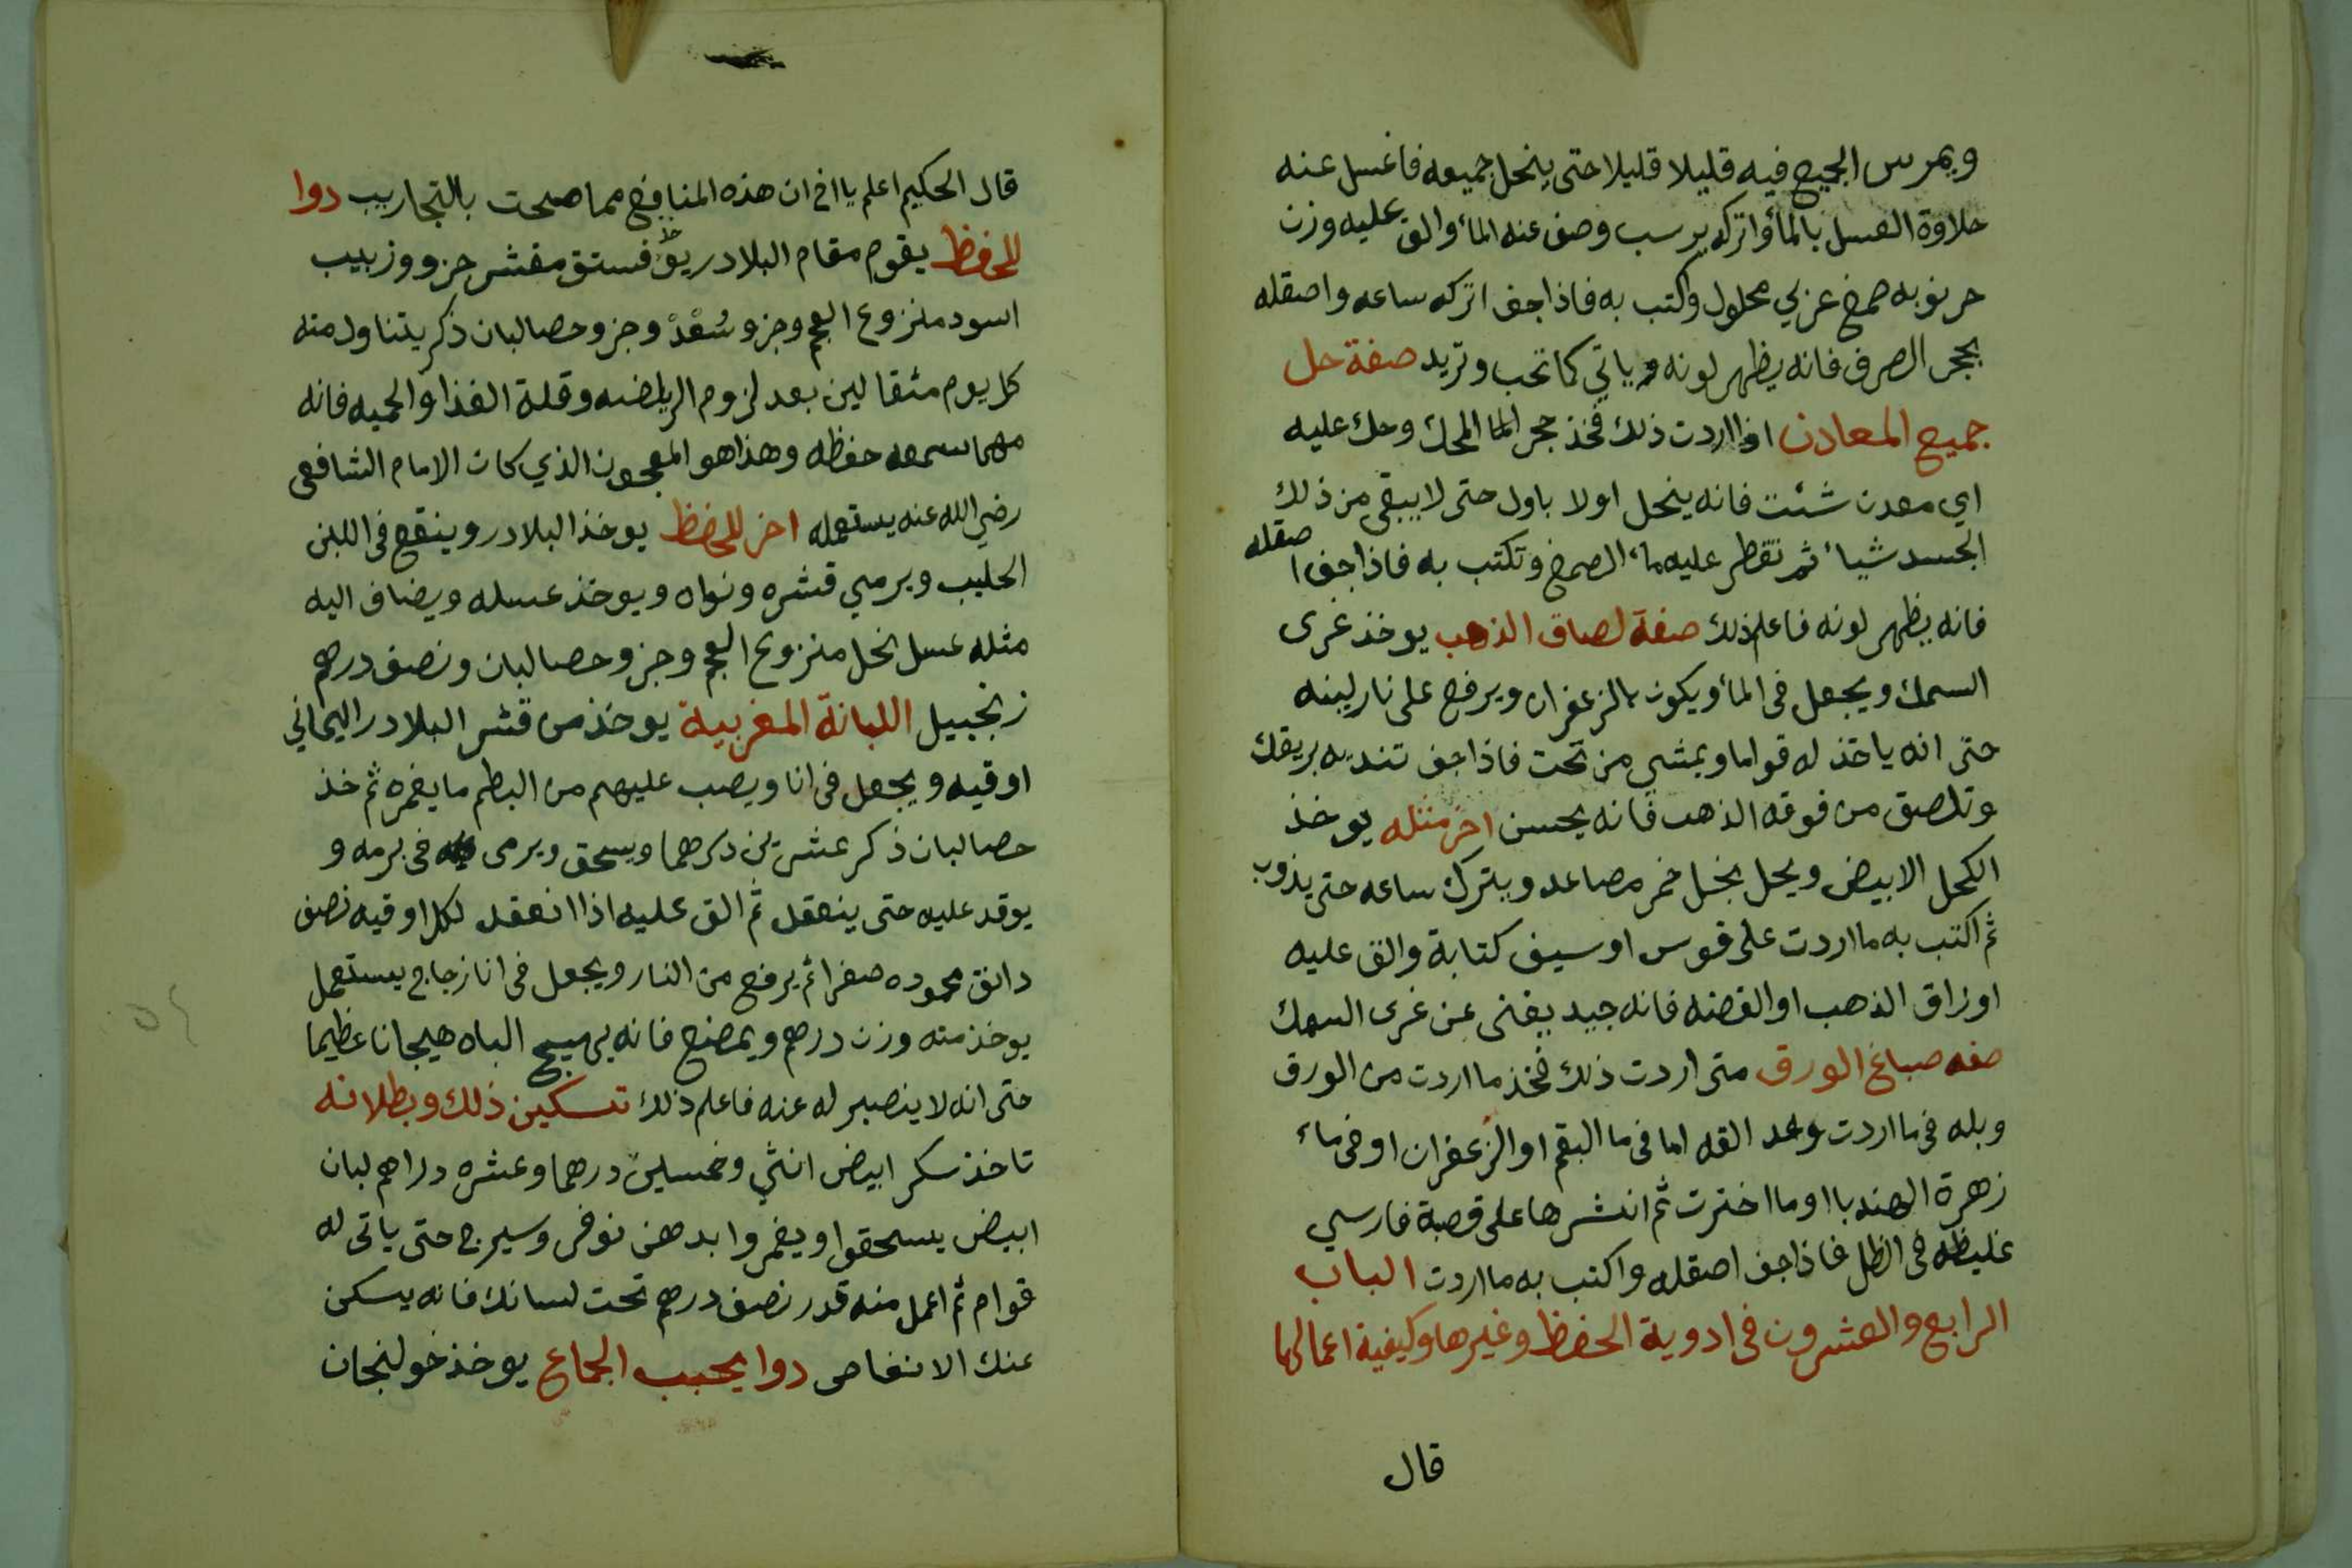 ويمرس الجميع فيه قليلا قليلا حتى ينحل جميعه فاغسل عنه
حلاوة العسل بالماء واتركه يرسب وصف عنه الماء والق عليه وزن
خرنوبه صمغ عربي محلول واكتب به فاذا جف اتركه ساعه واصقله
بحجر الصرف فانه يظهر لونه وياتي كما تحب وتريد صفة حل
جميع المعادن اذا اردت ذلك فخذ حجر الما المحك وحك عليه
اي معدن شئت فانه ينحل اولا باول حتى لا يبقى من ذلك
الجسد شياء ثم تقطر عليه ماء الصمغ وتكتب به فاذا جف اصقله
فانه يظهر لونه فاعلم ذلك صفة لصاق الذهب يوخذ غرى
السمك ويجعل في الماء ويكون بالزعفران ويرفع على نار لينه
حتى انه ياخذ له قواما ويمشي من تحت فاذا جف تنديه بريقك
وتلصق من فوقه الذهب فانه يحسن اخر مثله يوخذ
الكحل الابيض ويحل بخل خمر مصاعد ويترك ساعه حتى يذوب
ثم اكتب به ما اردت على قوس او سيف كتابة والق عليه
اوراق الذهب او الفضه فانه جيد يغنى عن غرى السمك
صفه صباغ الورق متى اردت ذلك فخذ ما اردت من الورق
وبله في ما اردت القه اما في ما البقم او الزعفران او في ماء
زهرة الهندبا او ما اخترت ثم انشرها على قصبة فارسي
غليظه في الظل فاذا جف اصقله واكتب به ما اردت الباب
الرابع والعشرون في ادوية الحفظ وغيرها وكيفية اعمالها
قال
قال الحكيم اعلم يا اخي ان هذه المنافع مما صحت بالتجاريب دوا
للحفظ يقوم مقام البلادر فستق مقشر جزو وزبيب
اسود منزوع العجم وجزو سُعْدْ وجزو حصالبان ذكر يتناول منه
كل يوم مثقالين بعد لزوم الرياضه وقلة الغذا والحميه فانه
مهما سمعه حفظه وهذا هو المعجون الذي كان الامام الشافعي
رضي الله عنه يستعمله اخر للحفظ يوخذ البلادر وينقع في اللبن
الحليب ويرمي قشره ونواه ويوخذ عسله ويضاف اليه
مثله عسل نحل منزوع العجم وجزو حصالبان ونصف درهم
زنجبيل اللبانة المغربية يوخذ من قشر البلادر اليماني
اوقيه ويجعل في انا ويصب عليهم من البطم ما يغمره ثم خذ
حصالبان ذكر عشرين درهما ويسحق ويرمى في برمه و
يوقد عليه حتى ينعقد ثم الق عليه اذا انعقد لكل اوقيه نصف
دانق محموده صفرا ثم يرفع من النار ويجعل في انا زجاج يستعمل
يوخذ منه وزن درهم ويمضغ فانه يهيج الباه هيجانا عظيما
حتى انه لا ينصبر له عنه فاعلم ذلك تسكين ذلك وبطلانه
تاخذ سكر ابيض انثي وخمسين درهما وعشره دراهم لبان
ابيض يسحقوا ويغمروا بدهن نوفر وسيرج حتى ياتى له
قوام ثم اعمل منه قدر نصف درهم تحت لسانك فانه يسكن
عنك الانعاص دوا يحبب الجماع يوخذ خولنجان